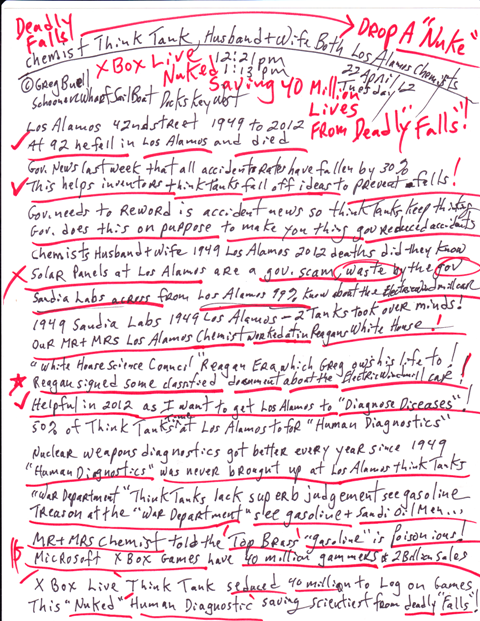 Deadly Falls! DROP A "Nuke"
chemist Think Tank, Husband + Wife Both Los Alamos Chemists
X Box Live 12:21pm
Nuked 1:13pm 22 April
© Greg Buell Saving 40 Million Tuesday
Schooner Wharf SailBoat Docks Key West LIVES
Los Alamos 42nd street 1949 to 2012 FROM Deadly "Falls"!
At 92 he fell in Los Alamos and died
Gov. News last week that all accident Rates have fallen by 30%
This helps inventors think tanks fall off ideas to prevent falls!
Gov. needs to Reword is accident news so think Tanks keep thinking
Gov. does this on purpose to make you thing gov reduced accidents
Chemists Husband + Wife 1949 Los Alamos 2012 deaths did they know
Solar Panels at Los Alamos are a gov. scam, waste by the gov
Sandia Labs across from Los Alamos 99% know about the Electricwindmillcar
1949 Saudia Labs 1949 Los Alamos - 2 Tanks took over minds!
our MR + MRS Los Alamos Chemist worked at in Reagans White House!
"White House Science Council" Reagan Era which Greg owes his life to!
Reagan signed some classified document about the Electricwindmill car!
Helpful in 2012 as I want to get Los Alamos to "Diagnose Diseases"!
50% of Think Tanks time at Los Alamos to for "Human Diagnostics"
Nuclear weapons diagnostics got better every year since 1949
"Human Diagnostics" was never brought up at Los Alamos think Tanks
"War Department" Think Tanks lack superb judgement see gasoline
Treason at the "War Department" see gasoline + Saudi Oil Men...
MR + MRS Chemist told the "Top Brass" "gasoline" is Poisonious!
Microsoft X Box Games have 40 million gammers & 2 Billion Sales
X Box Live Think Tank seduced 40 million to Log on Games
This "Nuked" Human Diagnostic saving scientiest from deadly "Falls"!